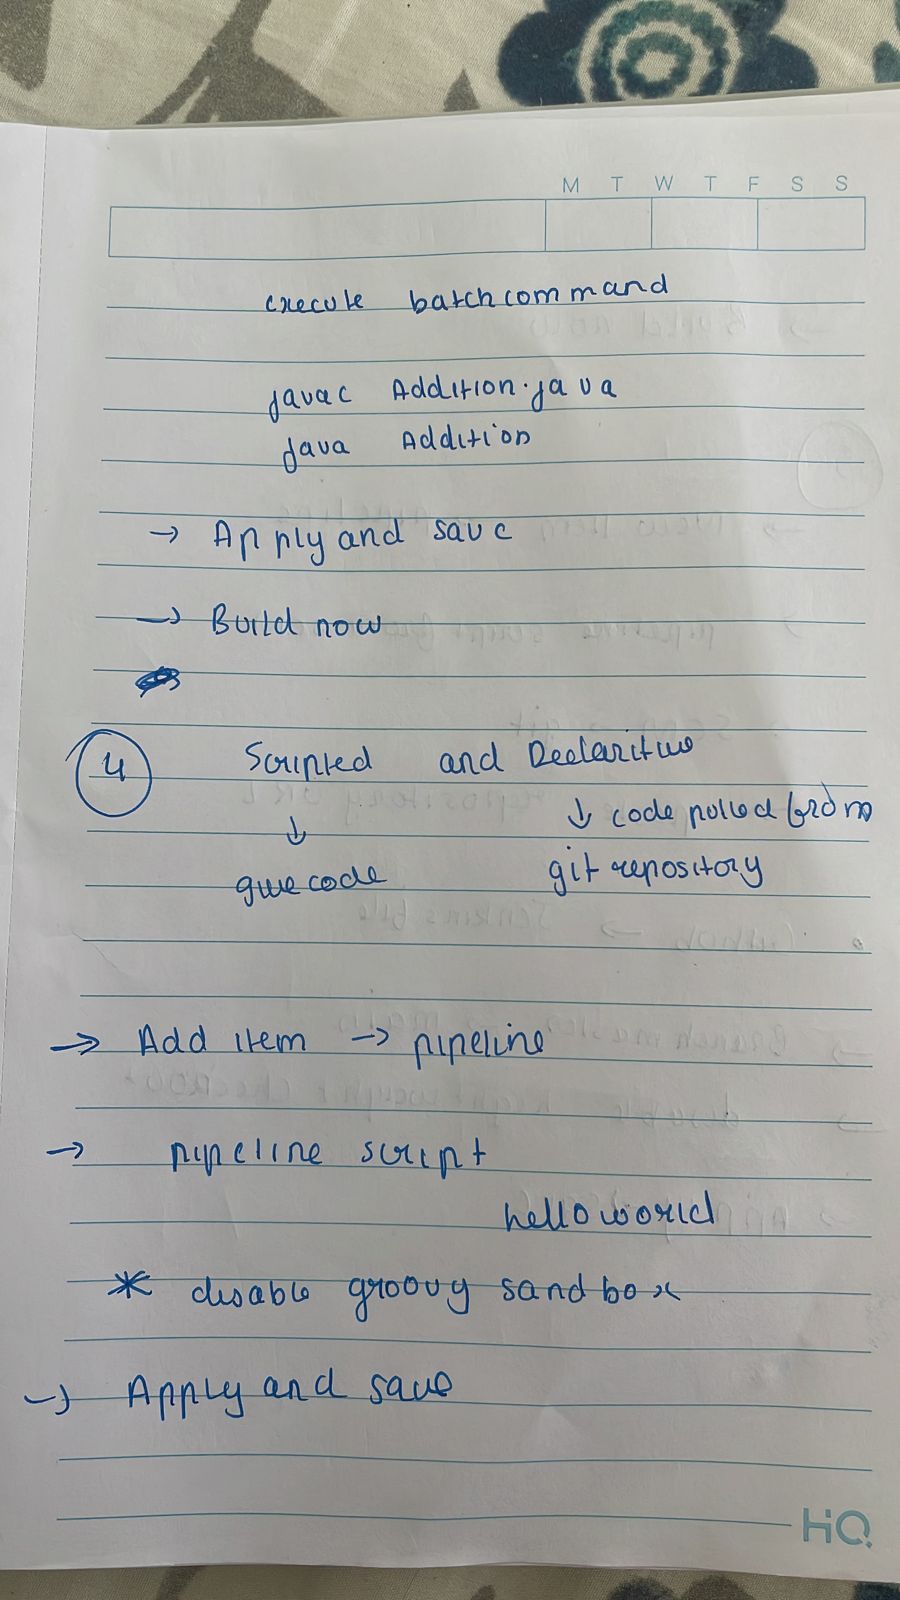 M T W T F S S
execute batch command
javac Addition.java
java Addition
→ Apply and save
→ Build now
4 Scripted and Declaritive
↓ ↓ code pulled from
give code git repository
→ Add item → pipeline
→ pipeline script
hello world
* disable groovy sandbox
→ Apply and save
HQ